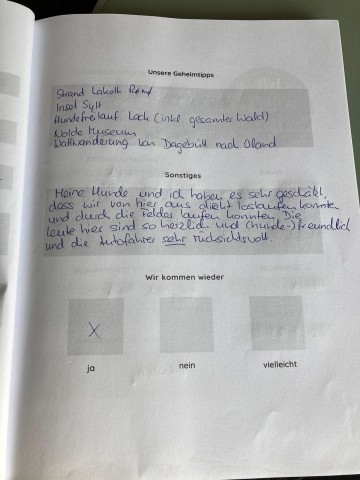 Unsere Geheimtipps
Strand Lakolk Rømø
Insel Sylt
Hundefreilauf Leck (inkl. gesamter Wald)
Nolde Museum
Wattwanderung von Dagebüll nach Oland
Sonstiges
Meine Hunde und ich haben es sehr geschätzt,
dass wir von hier aus direkt loslaufen konnten
und durch die Felder laufen konnten. Die
Leute hier sind so herzlich und (hunde-)freundlich
und die Autofahrer sehr rücksichtsvoll.
Wir kommen wieder
X
ja nein vielleicht